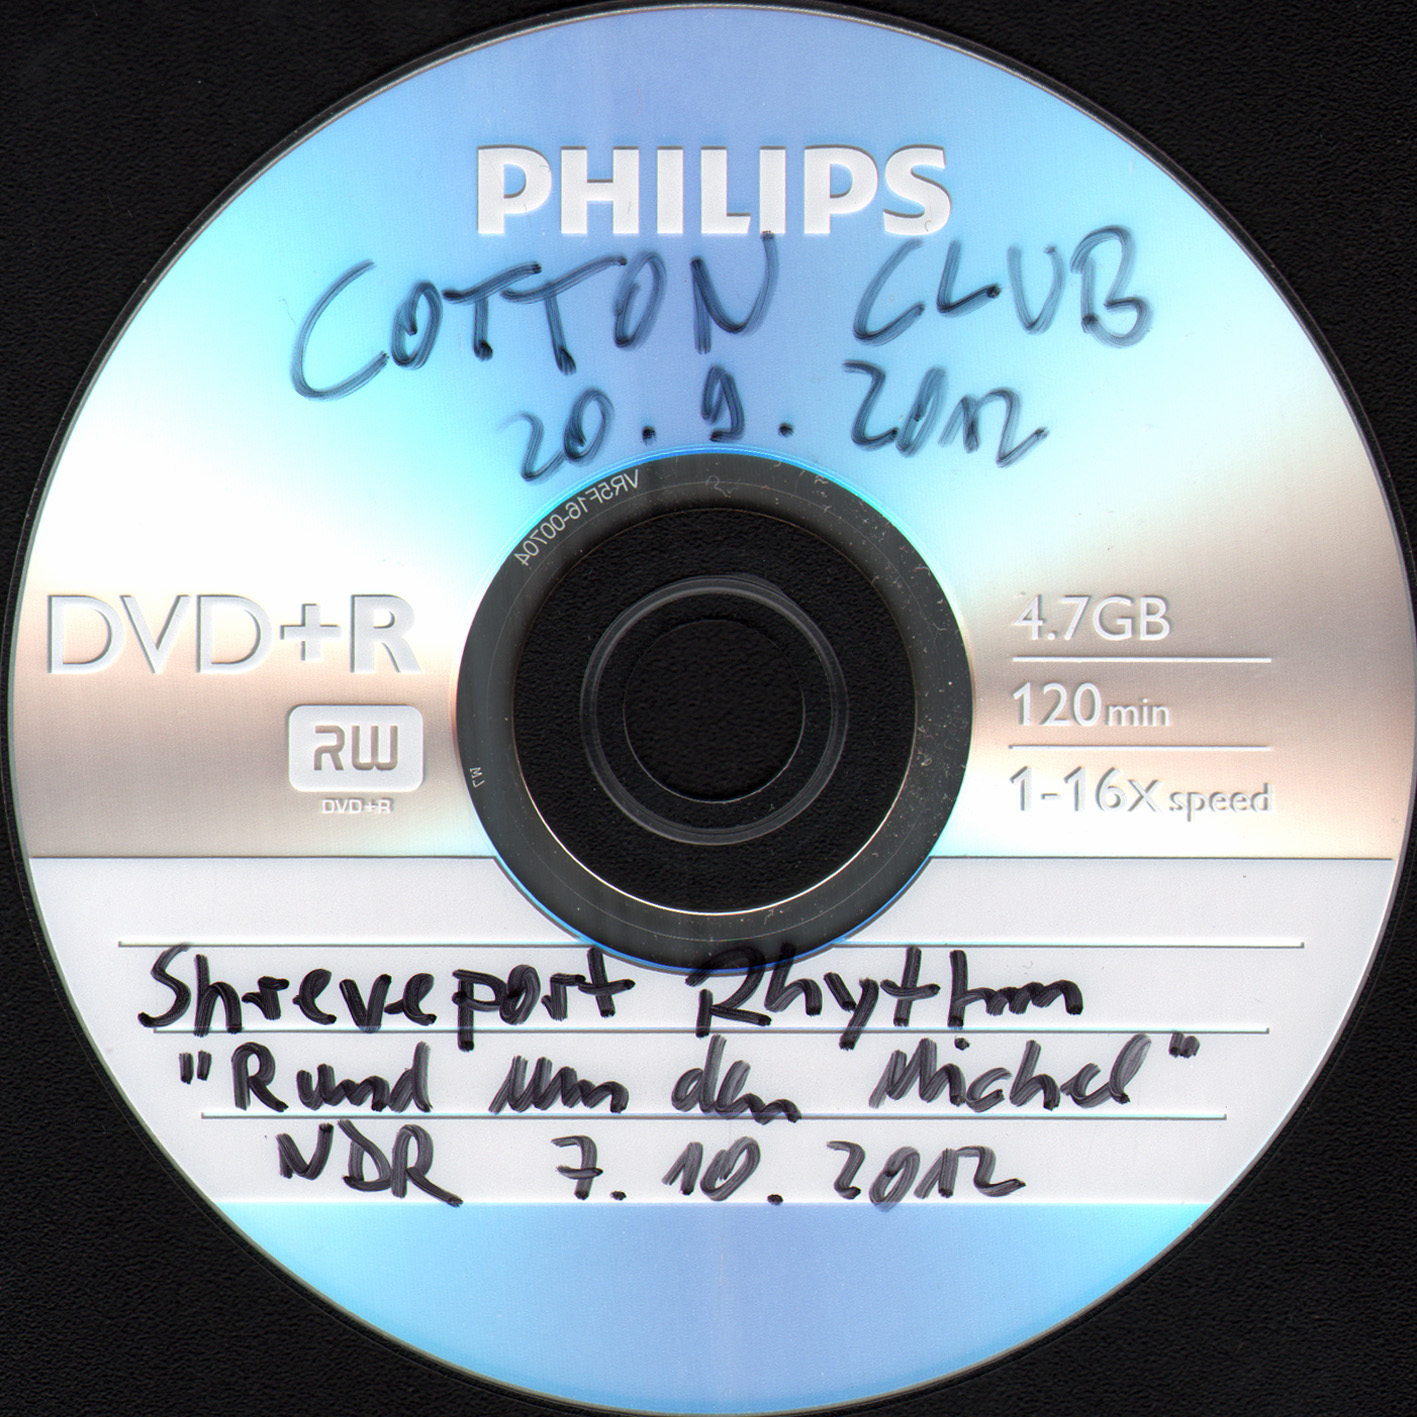 PHILIPS
COTTON CLUB
20.9.2012
VR5F16-00704
DVD+R
RW
DVD+R
4.7GB
120min
1-16x speed
Shreveport Rhythm
"Rund um den Michel"
NDR 7.10.2012